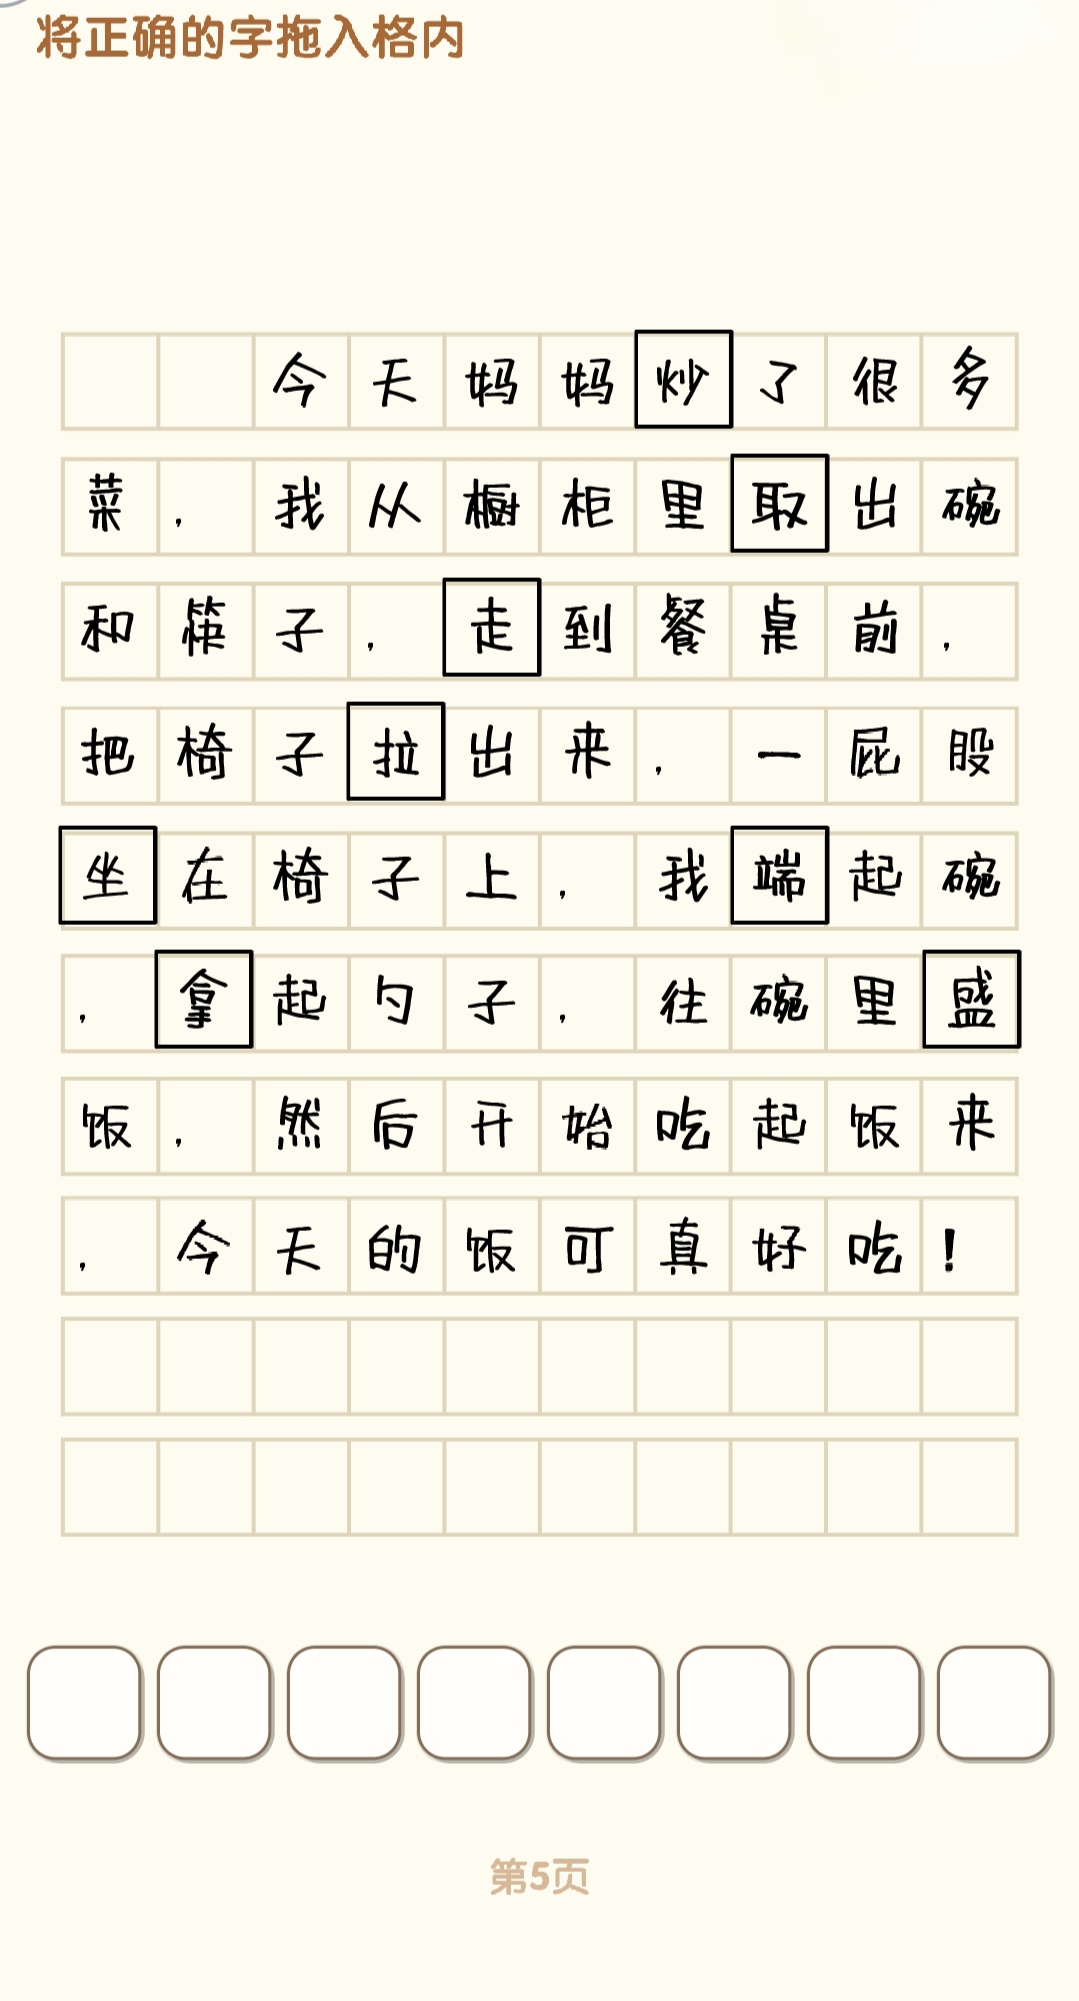 将正确的字拖入格内
今天妈妈炒了很多
菜，我从橱柜里取出碗
和筷子，走到餐桌前，
把椅子拉出来，一屁股
坐在椅子上，我端起碗
，拿起勺子，往碗里盛
饭，然后开始吃起饭来
，今天的饭可真好吃！
第5页